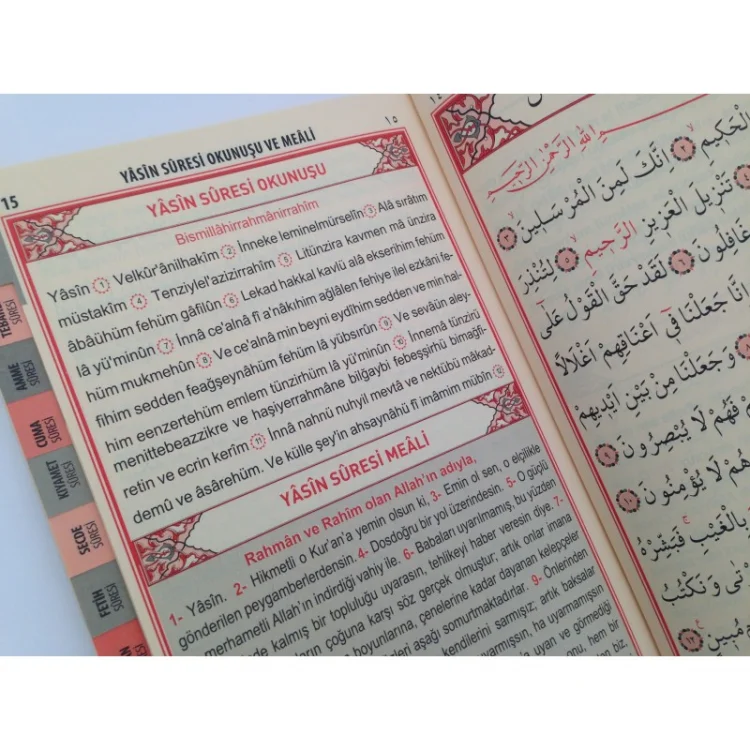 15
YÂSÎN SÛRESİ OKUNUŞU VE MEÂLİ
١٥
YÂSÎN SÛRESİ OKUNUŞU
Bismillâhirrahmânirrahîm
Yâsîn 1 Velkûr'ânilhakîm 2 İnneke leminelmürselîn 3 Alâ sırâtım
müstakîm 4 Tenziylel'azizirrahîm 5 Litünzira kavmen mâ ünzira
âbâühüm fehüm gâfilûn 6 Lekad hakkal kavlü alâ ekserihim fehüm
lâ yü'minûn 7 İnnâ ce'alnâ fî a'nâkıhim ağlâlen fehiye ilel ezkâni fe-
hüm mukmehûn 8 Ve ce'alnâ min beyni eydîhim sedden ve min hal-
fihim sedden feağşeynâhüm fehüm lâ yübsırûn 9 Ve sevâün aley-
him eenzertehüm emlem tünzirhüm lâ yü'minûn 10 İnnemâ tünzirü
menittebeazzikre ve haşiyerrahmâne bilğaybi febeşşirhü bimağfi-
retin ve ecrin kerîm 11 İnnâ nahnü nuhyil mevtâ ve nektübü mâkad-
demû ve âsârehüm. Ve külle şey'in ahsaynâhü fî imâmim mübîn 12
YÂSÎN SÛRESİ MEÂLİ
Rahmân ve Rahîm olan Allah'ın adıyla,
1- Yâsîn. 2- Hikmetli o Kur'an'a yemin olsun ki, 3- Emin ol sen, o elçilikle
gönderilen peygamberlerdensin. 4- Dosdoğru bir yol üzerindesin. 5- O güçlü
merhametli Allah'ın indirdiği vahiy ile. 6- Babaları uyarılmamış, bu yüzden
kalmış bir topluluğu uyarasın, tehlikeyi haber veresin diye. 7-
çoğuna karşı söz gerçek olmuştur; artık onlar imana
boyunlarına, çenelerine kadar dayanan kelepçeler
aşağı somurtmaktadırlar. 9- Önlerinden
kendilerini sarmışız; artık baksalar
uyarmışsın, ha uyarmamışsın
uyan ve görmediği
onu, hem bir
SÛRESİ
AMME
SÛRESİ
CUMA
SÛRESİ
KIYAMET
SÛRESİ
SECDE
SÛRESİ
FETİH
SÛRESİ
١٤
الْحَكِيمِ ٢ اِنَّكَ لَمِنَ الْمُرْسَلِينَ ٣
تَنْزِيلَ الْعَزِيزِ الرَّحِيمِ ٥ لِتُنْذِرَ
غَافِلُونَ ٦ لَقَدْ حَقَّ الْقَوْلُ عَلٰى
جَعَلْنَا فِى اَعْنَاقِهِمْ اَغْلَالًا
٨ وَجَعَلْنَا مِنْ بَيْنِ اَيْدِيهِمْ
فَهُمْ لَا يُبْصِرُونَ ٩
هُمْ لَا يُؤْمِنُونَ ١٠
بِالْغَيْبِ فَبَشِّرْهُ
وَنَكْتُبُ
مُبِينٍ ١٢